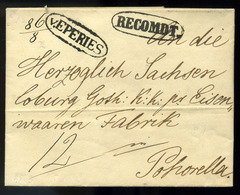 86/8
v. EPERIES
RECOMDT.
An die
Herzoglich Sachsen
Coburg Goth: K: k: pr Eisen-
waaren Fabrik
12
Pohorella.